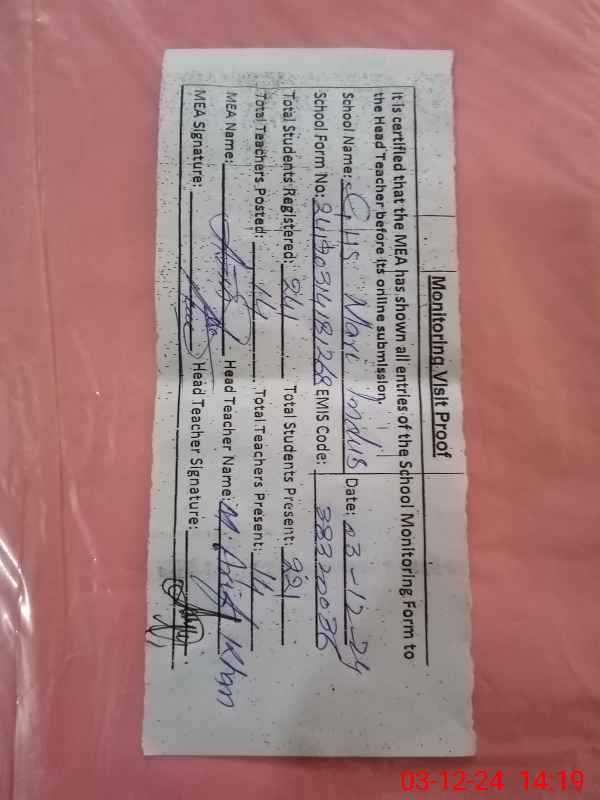 Monitoring Visit Proof
It is certified that the MEA has shown all entries of the School Monitoring Form to
the Head Teacher before its online submission.
School Name: GHS Mari Indus Date: 03-12-24
School Form No: EMIS Code: 38320036
Total Students Registered: 241 Total Students Present: 221
Total Teachers Posted: 14 Total Teachers Present: 14
MEA Name: Head Teacher Name: M. Khan
MEA Signature: Head Teacher Signature:
03-12-24 14:19